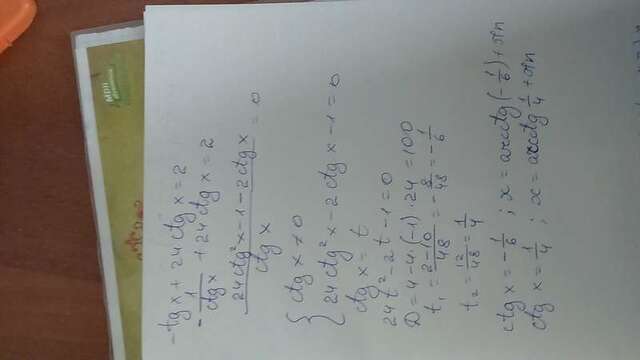 -tg x + 24 ctg x = 2
- 1/ctg x + 24 ctg x = 2
(24 ctg² x - 1 - 2 ctg x)/ctg x = 0
{ ctg x ≠ 0
24 ctg² x - 2 ctg x - 1 = 0
ctg x = t
24t² - 2t - 1 = 0
D = 4 - 4·(-1)·24 = 100
t₁ = (2-10)/48 = -8/48 = -1/6
t₂ = 12/48 = 1/4
ctg x = -1/6 ; x = arcctg(-1/6) + πn
ctg x = 1/4 ; x = arcctg 1/4 + πn